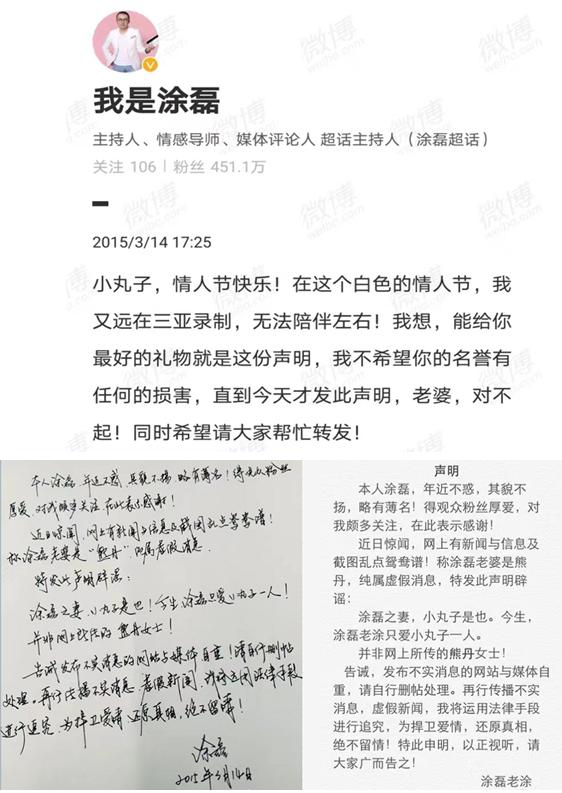 我是涂磊
主持人、情感导师、媒体评论人 超话主持人（涂磊超话）
关注 106 | 粉丝 451.1万
2015/3/14 17:25
小丸子，情人节快乐！在这个白色的情人节，我
又远在三亚录制，无法陪伴左右！我想，能给你
最好的礼物就是这份声明，我不希望你的名誉有
任何的损害，直到今天才发此声明，老婆，对不
起！同时希望请大家帮忙转发！
本人涂磊 年近不惑 其貌不扬 略有薄名！得观众粉丝
厚爱，对我颇多关注 在此表示感谢！
近日惊闻，网上有新闻与信息及截图乱点鸳鸯谱！
称涂磊老婆是“熊丹”纯属虚假消息
特发此声明辟谣：
涂磊之妻，小丸子是也！今生 涂磊只爱小丸子一人！
并非网上所传的 熊丹女士！
告诫发布不实消息的网站与媒体自重！请自行删帖
处理。再行传播不实消息 虚假新闻，我将运用法律手段
进行追究 为捍卫爱情 还原真相，绝不留情！
涂磊
2015年3月14日
声明
本人涂磊，年近不惑，其貌不
扬，略有薄名！得观众粉丝厚爱，对
我颇多关注，在此表示感谢！
近日惊闻，网上有新闻与信息及
截图乱点鸳鸯谱！称涂磊老婆是熊
丹，纯属虚假消息，特发此声明辟
谣：
涂磊之妻，小丸子是也。今生，
涂磊老涂只爱小丸子一人。
并非网上所传的熊丹女士！
告诫，发布不实消息的网站与媒体自
重，请自行删帖处理。再行传播不实
消息，虚假新闻，我将运用法律手段
进行追究，为捍卫爱情，还原真相，
绝不留情！特此申明，以正视听，请
大家广而告之！
涂磊老涂